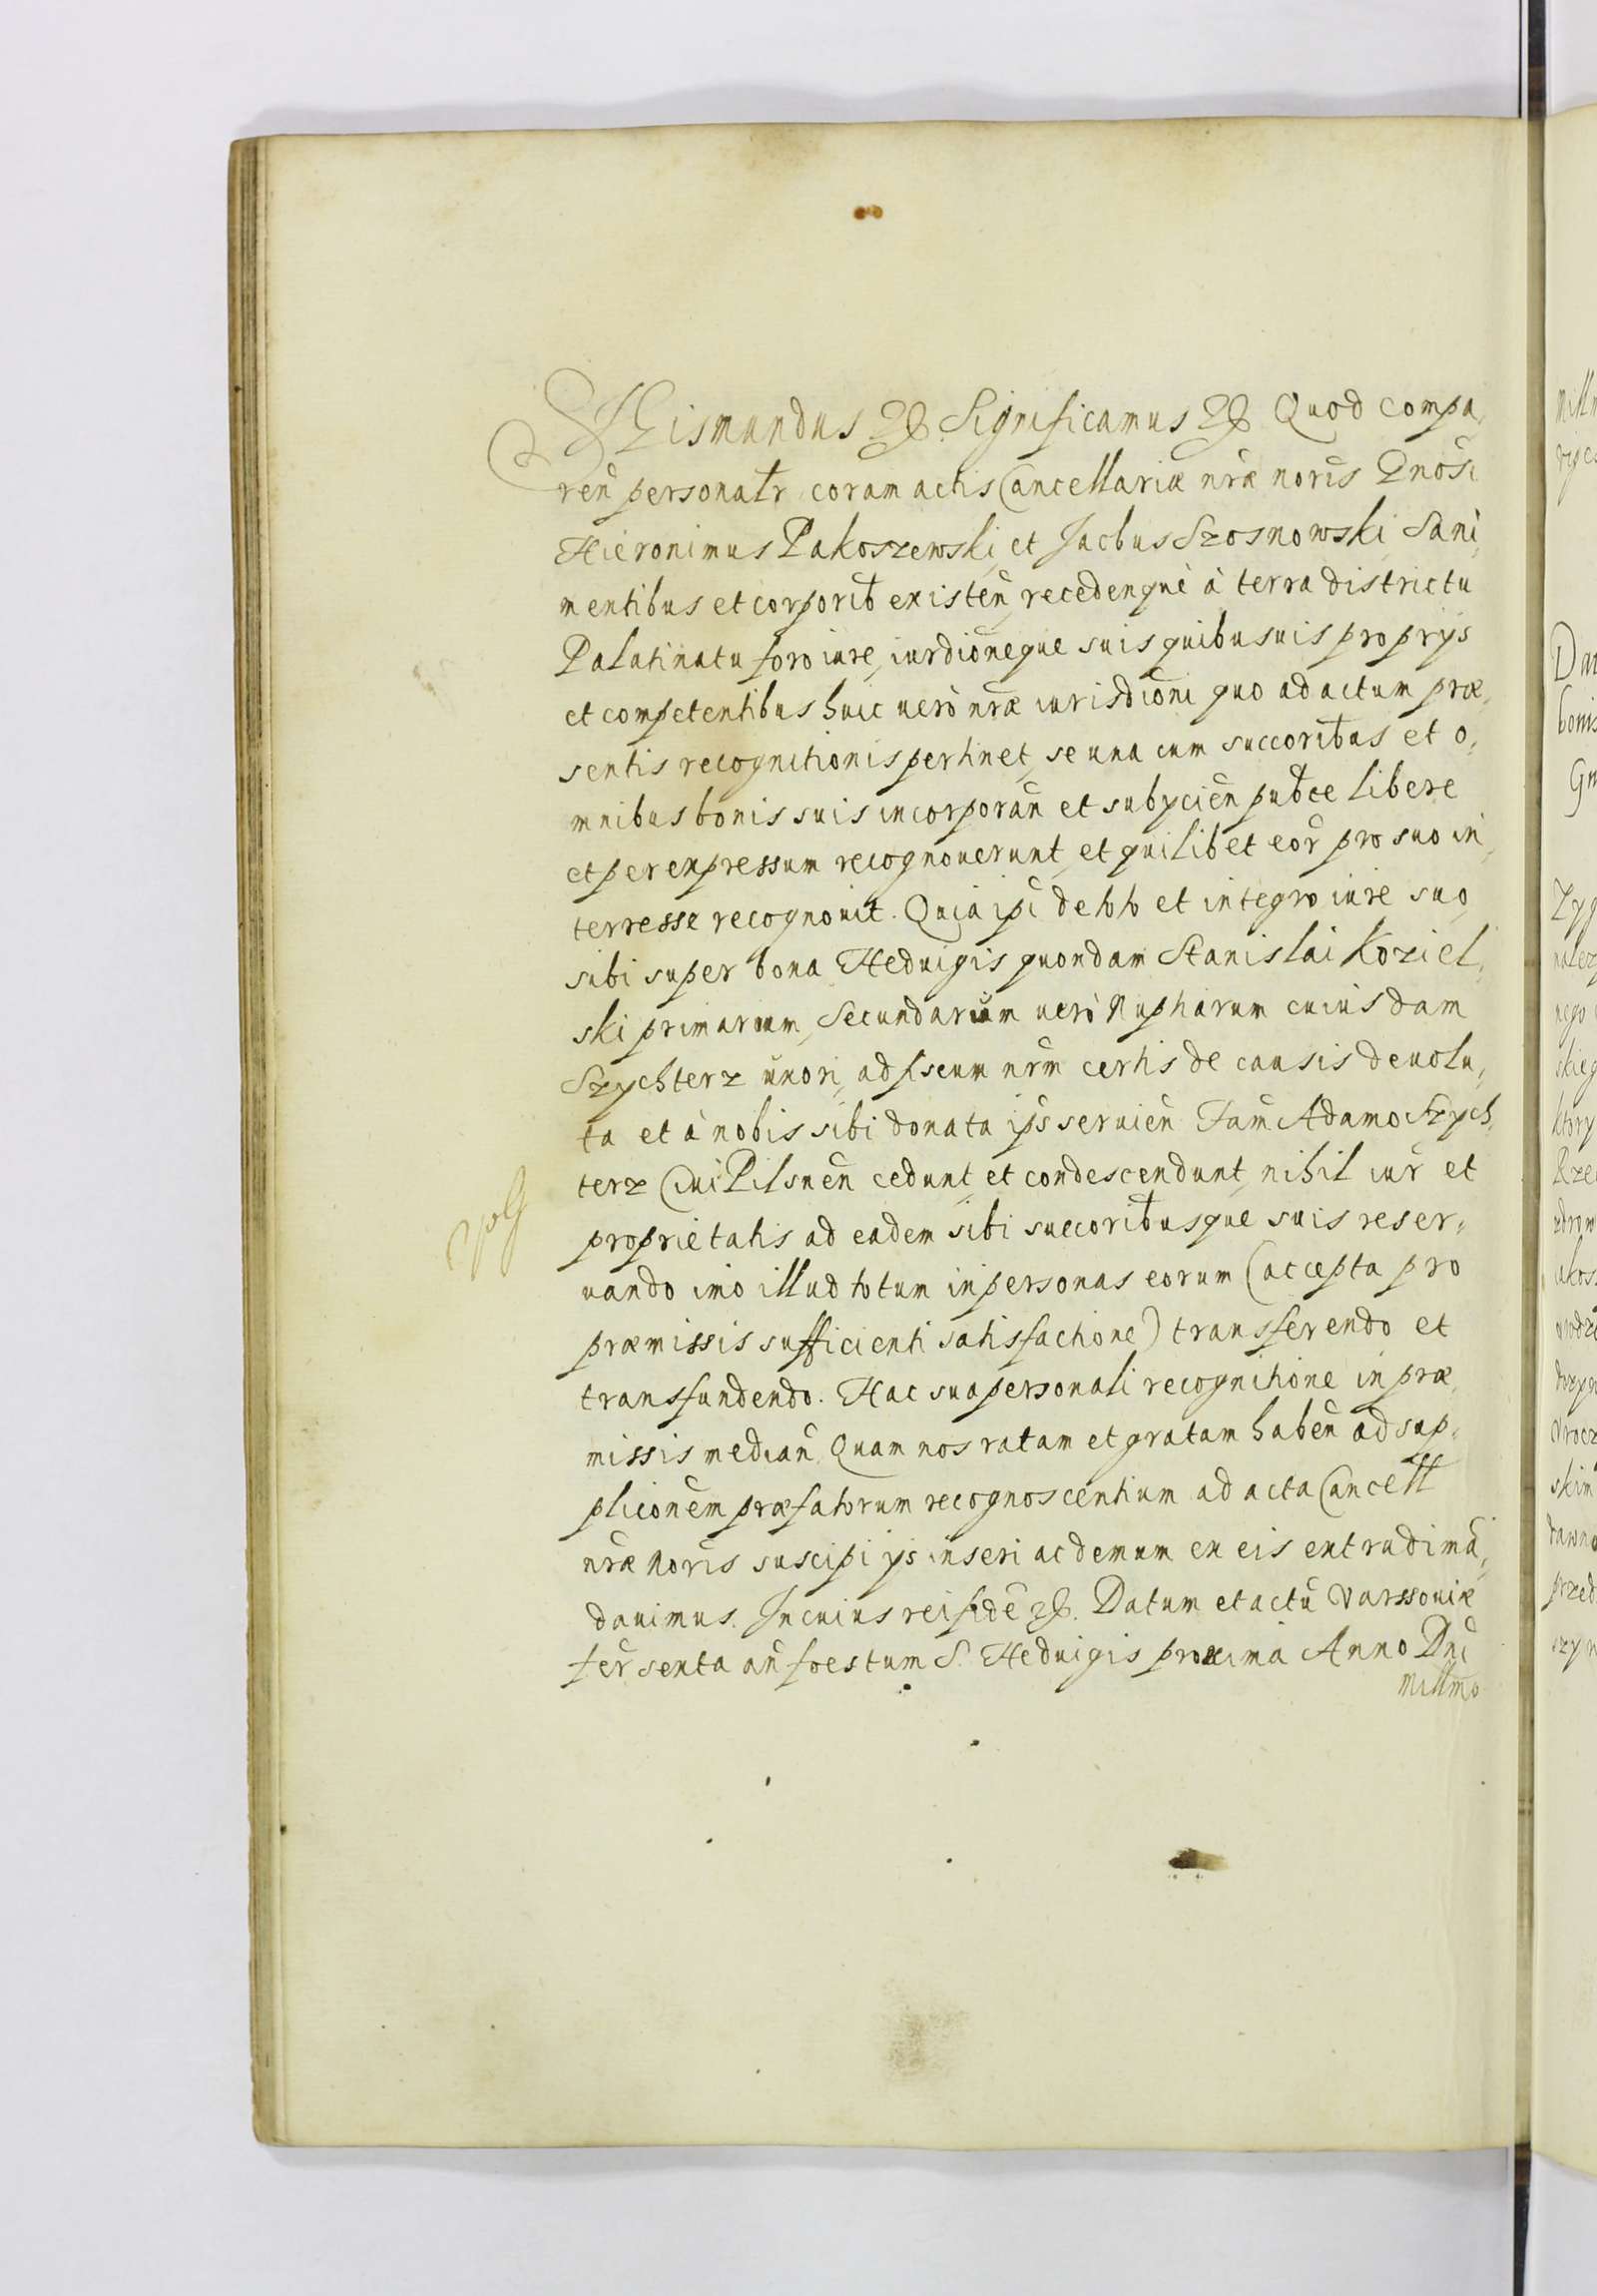 SIGismundus &c. Significamus &c. Quod compa,
reñ personalr coram actis Cancellariæ nr̃æ noris Gnosi
Hieronimus Pakoszewski, et Jacbus Szosnowski Sani
mentibus et corporib existeñ, recedenqué à terra districtu
Palatinatu foro iure, iurdioneque suis quibusuis proprijs
et competentibus huic uerò nr̃æ iurisdicioni quo ad actum præ,
sentis recognitionis pertinet, se una cum succoribus et o,
mnibus bonis suis incorporañ et subijcieñ publce libere
et per expressum recognouerunt, et quilibet eor̃ pro suo in,
terresse recognouit. Quia ipi de toto et integro iure suo,
sibi super bona Heduigis quondam Stanislai Koziel,
ski primarium, Secundarium uerò Nupharum cuiusdam
Szychterz uxori, ad fiscum nr̃m certis de causis deuolu,
ta et à nobis sibi donata ips seruien Fam Adamo Szych,
terz Ciui Pilsneñ cedunt et condescendunt, nihil iur̃ et
proprietatis ad eadem sibi succoribusque suis reser,
uando imo illud totum in personas eorum (accepta pro
præmissis sufficienti satisfactione) transferendo et
transfundendo. Hac sua personali recognitione in præ,
missis mediañ. Quam nos ratam et gratam habeñ ad sup,
pliconem præfatorum recognoscentium ad acta Cancell
nr̃æ Noris suscipi ijs inseri ac demum ex eis extradi mã,
dauimus. In cuius rei fidẽ &c. Datum et actũ Varssouiæ
fer sexta añ foestum S. Heduigis proxima Anno Dni
Millmo